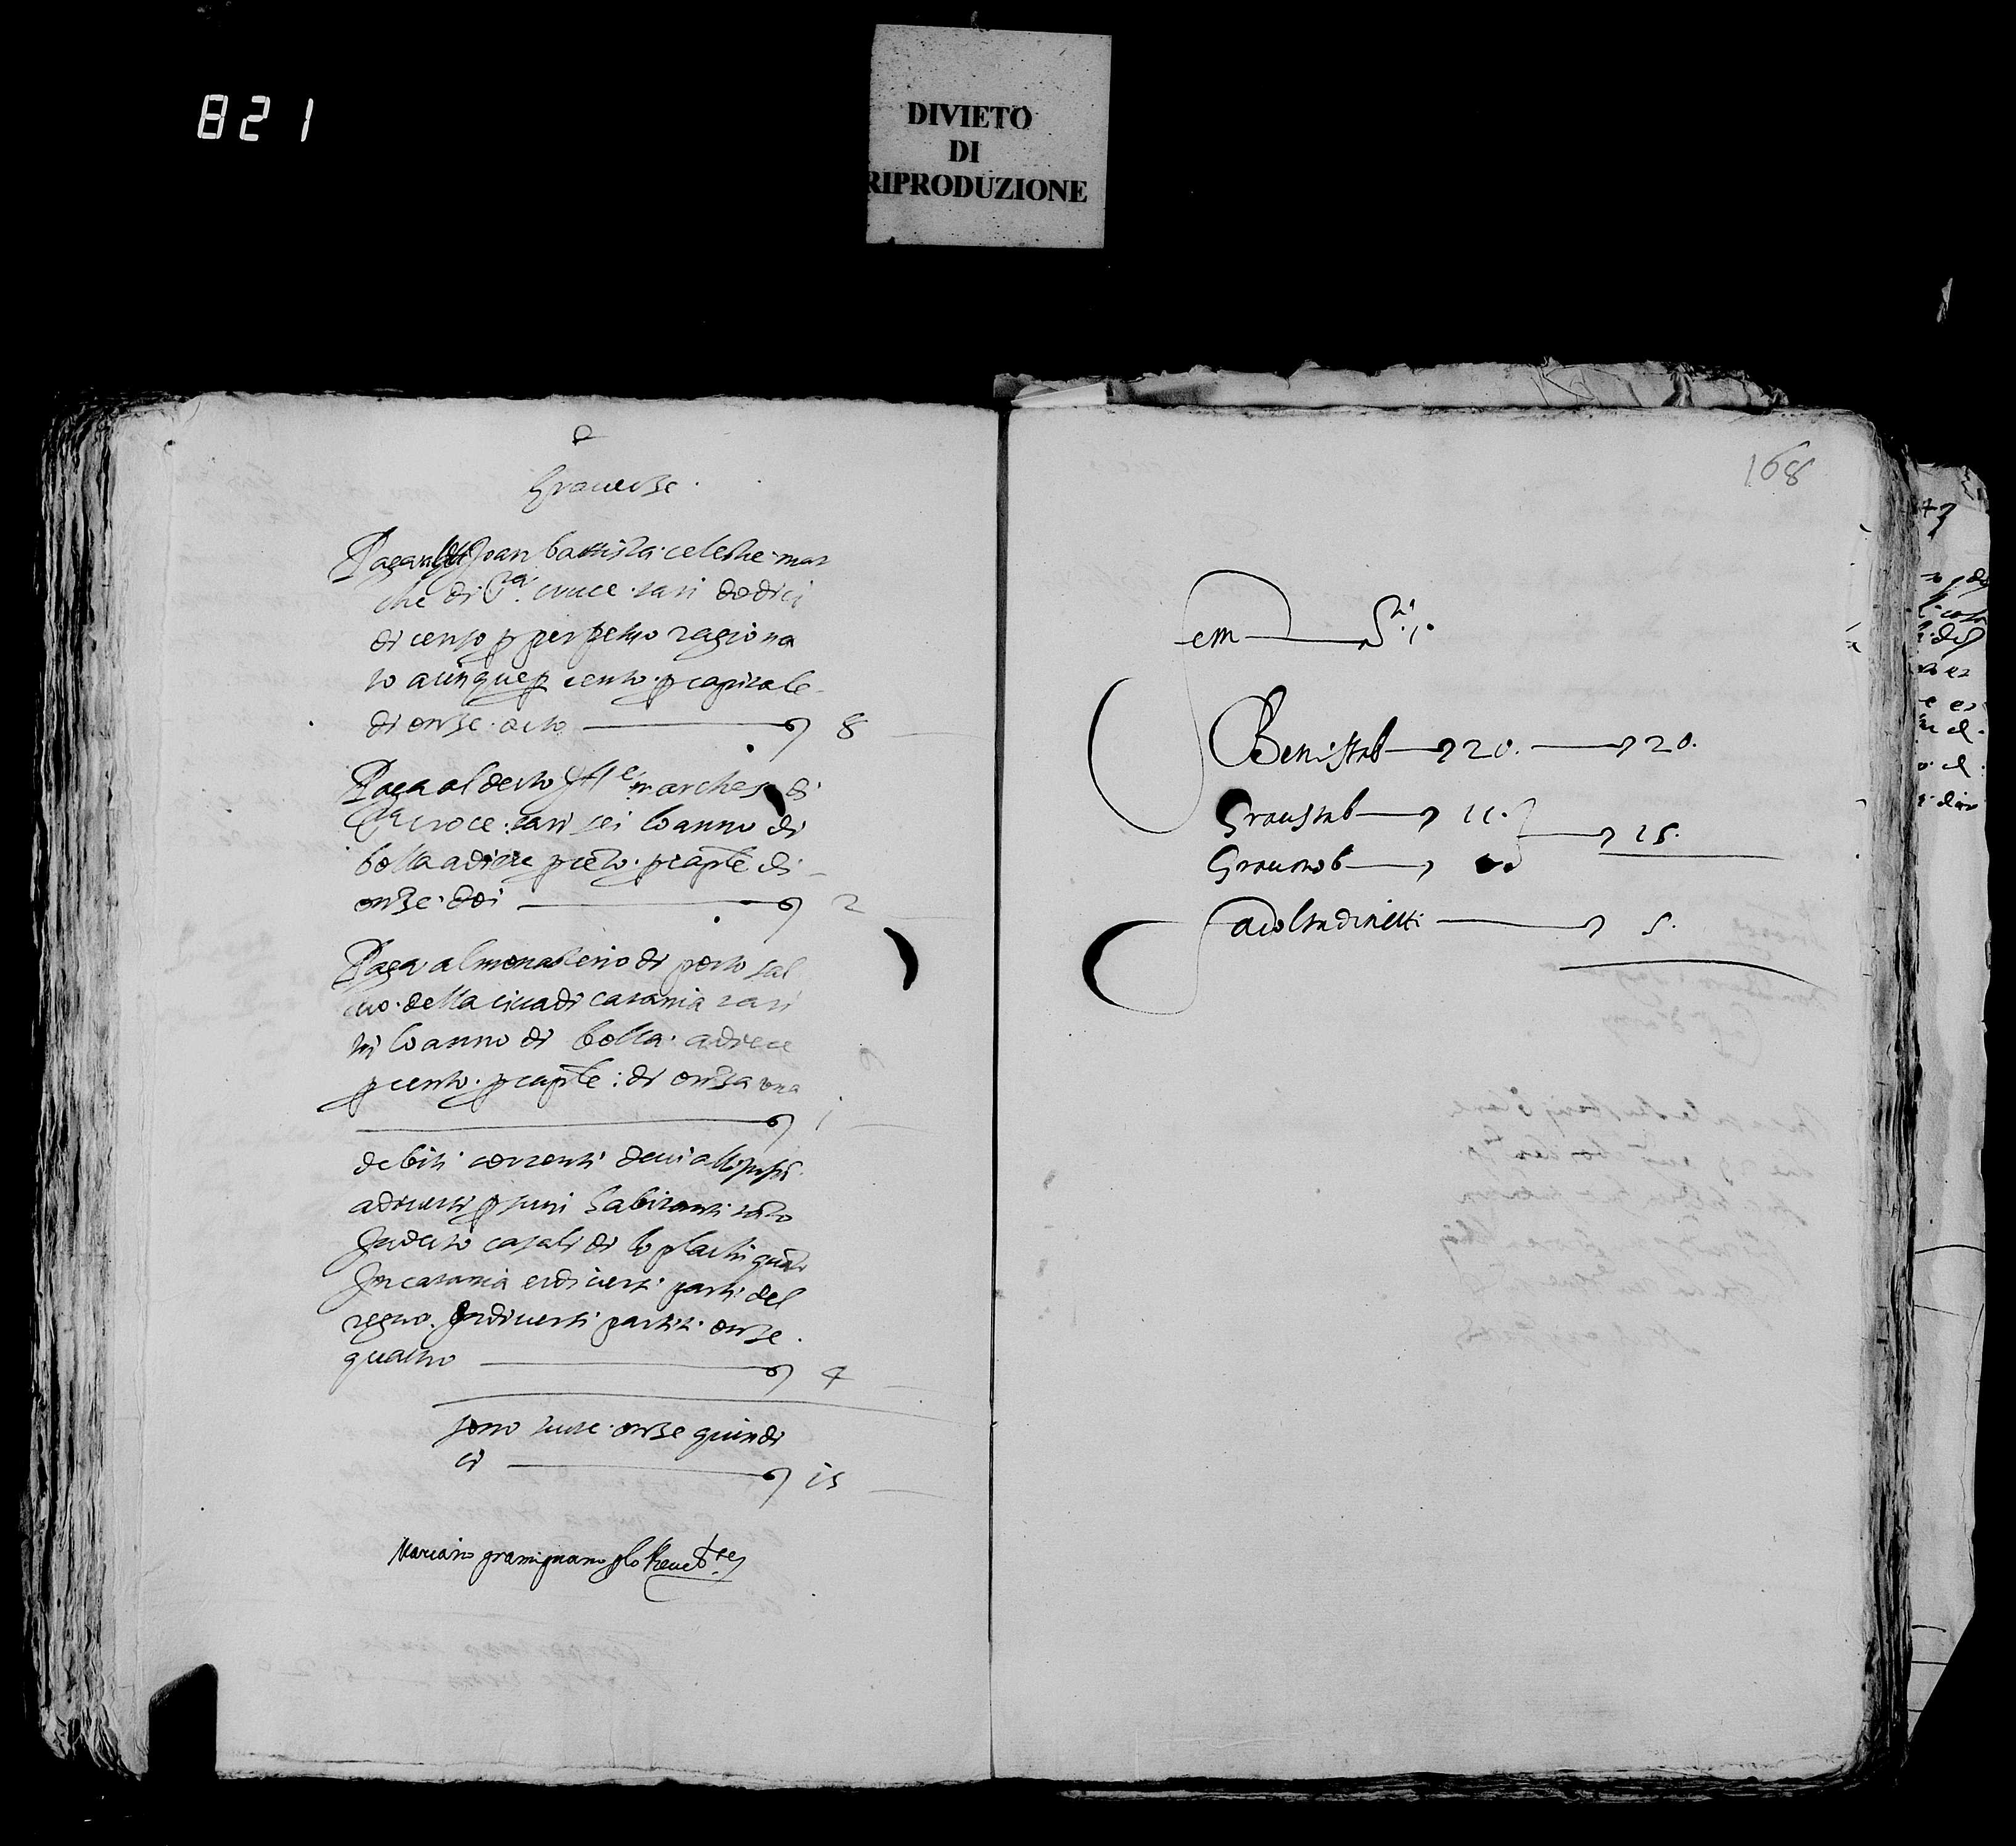 821
DIVIETO
DI
RIPRODUZIONE
Gravezze
Paga Joan battista celestre mar
che di S.ta cruce tari dodici
di censo p perpetuo ragiona
to a cinque p cento p capitale
di onze octo 8
Paga al decto Ill.e marchese di
S.ta croce tari sei lo anno di
bolla a diece p cento p cap.le di
onze doi 2
Paga al monasterio di porto sal
vo della cita di catania tari
tri lo anno di bolla a diece
p cento p cap.le di onza una
1
debiti correnti devi
a diversi p suni habitanti tanto
in decto casali di lo plachi quanto
In catania e diversi parti del
regno In diversi partiti onze
quatro 4
sono tutte onze quindi
ci 15
Mariano gramignano p lo
168
em S.ri 1.
Beni stab 20. 20.
Grav stab 11.
15.
Grav mob
facolta di netti 5.